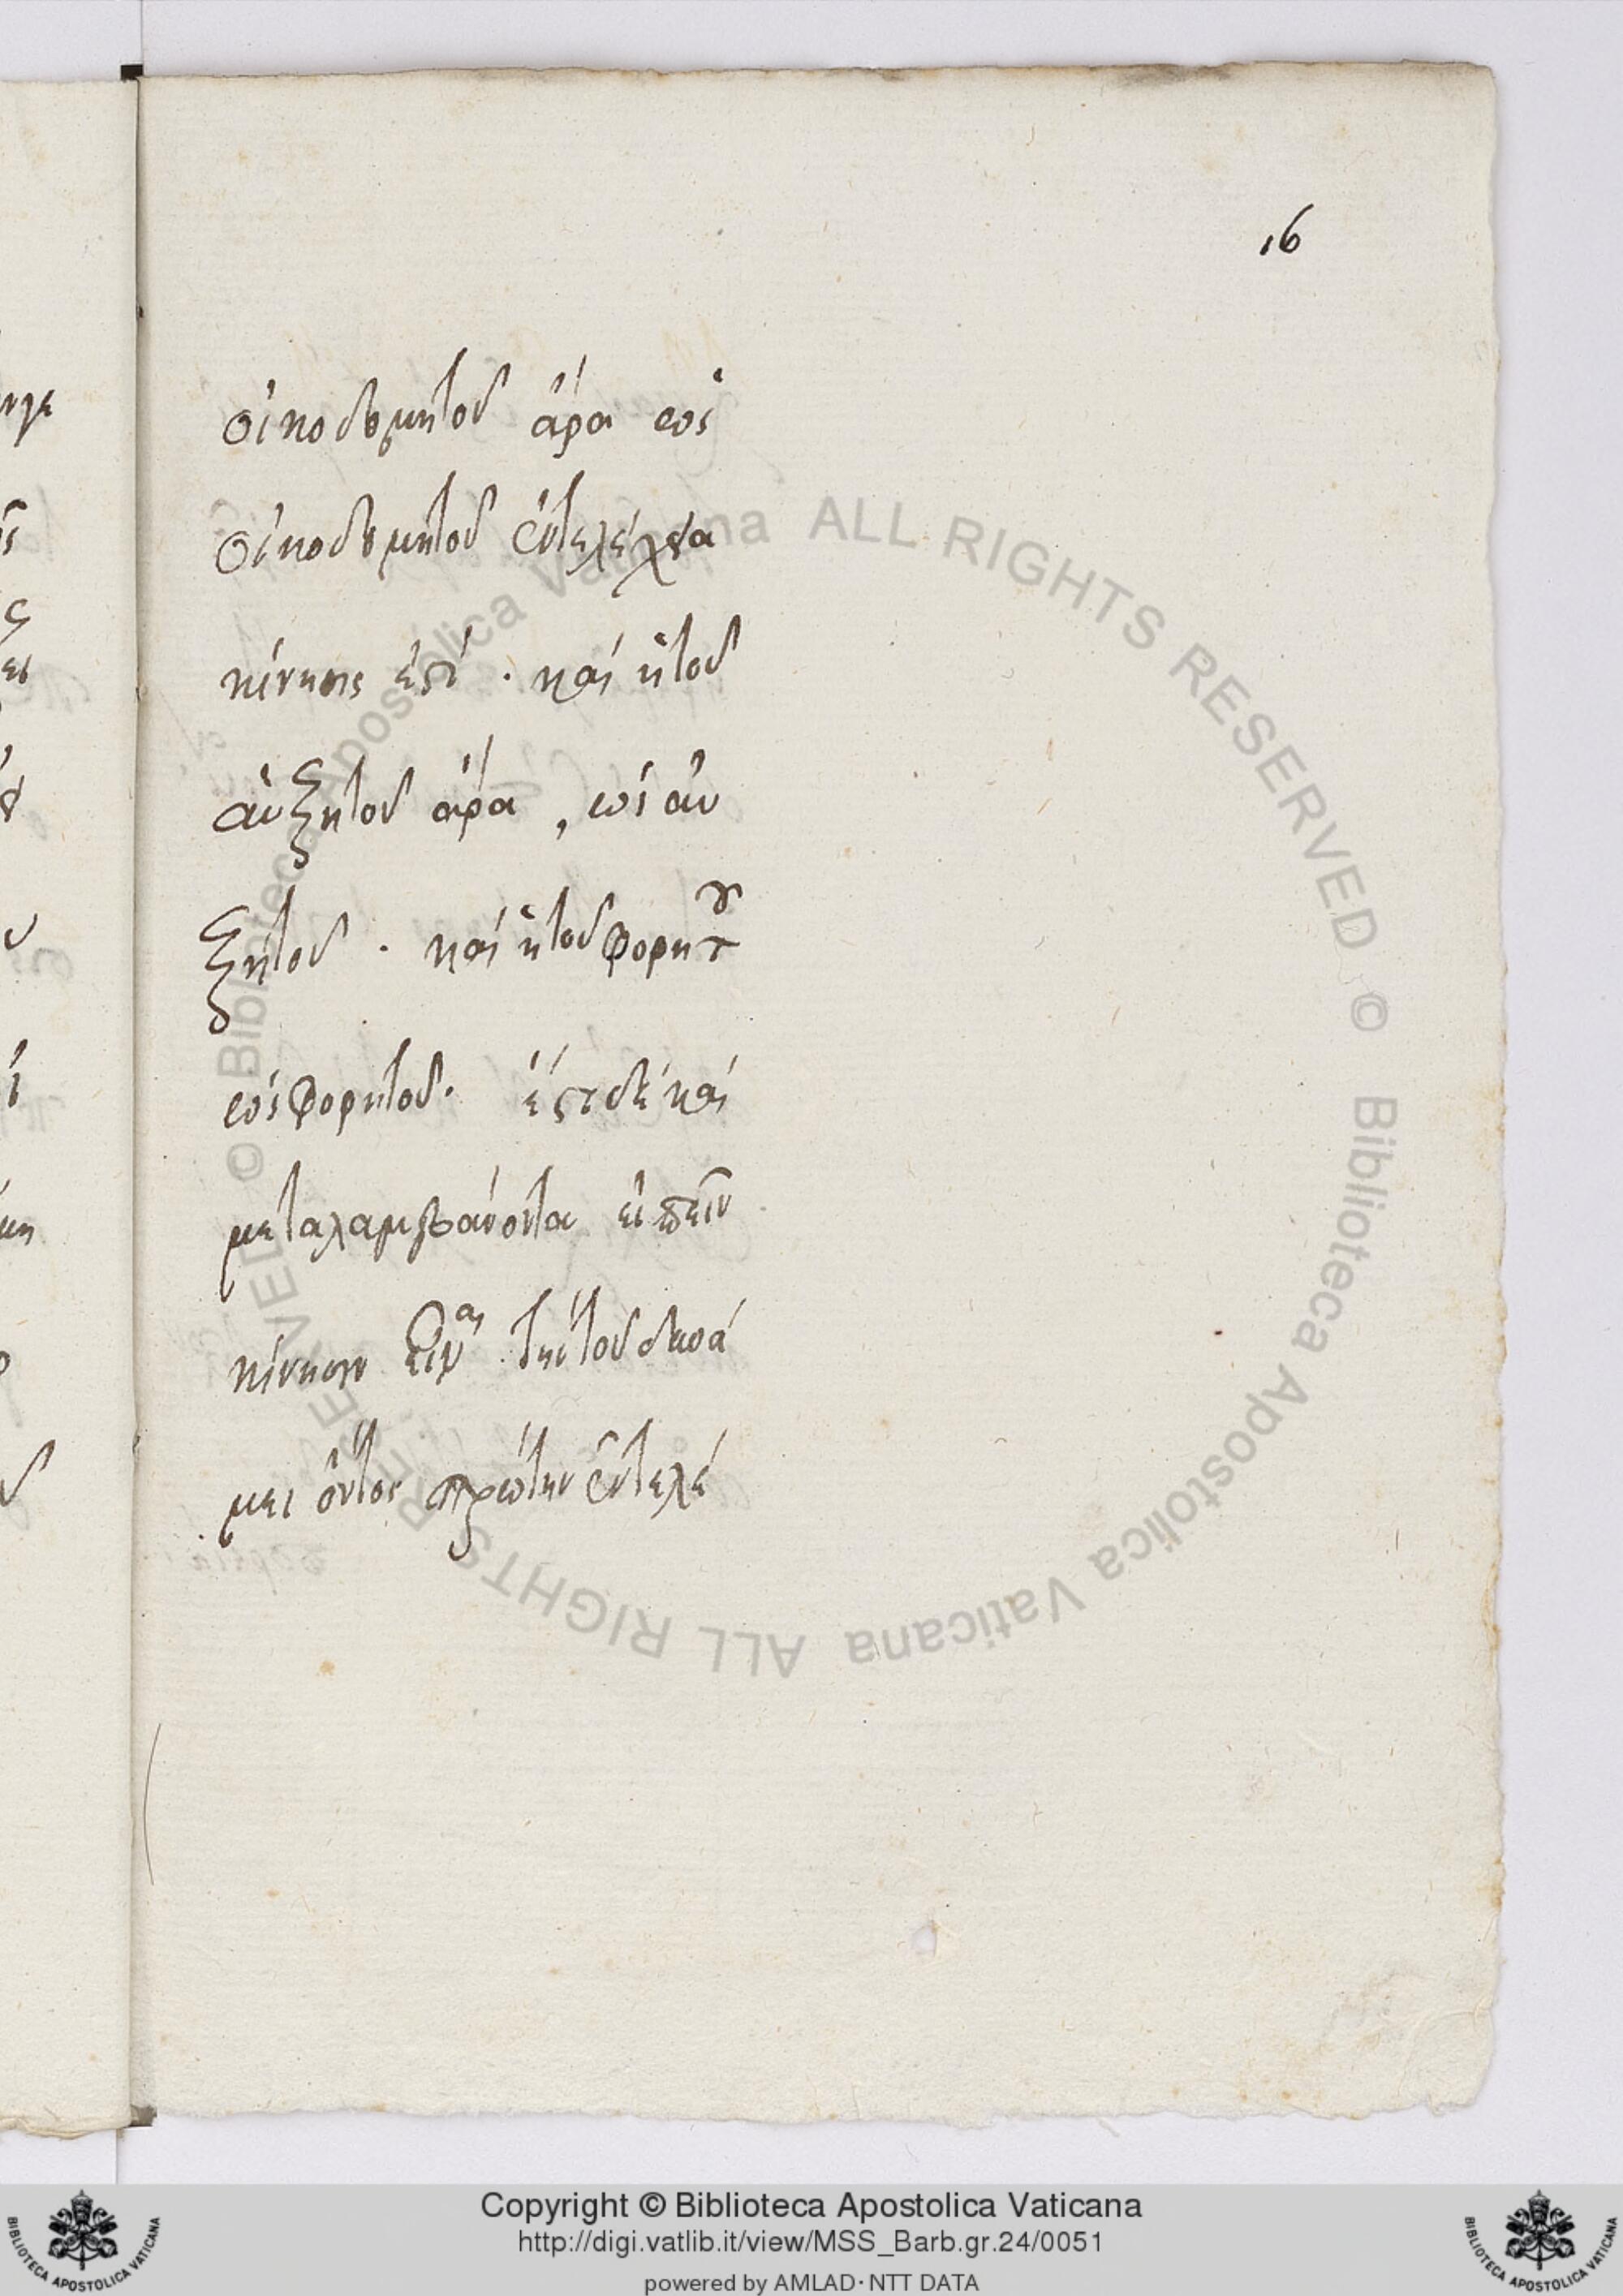 16
οἰκοδομητοῦ ἄρα ὡς
οἰκοδομητοῦ ἐντελέχεια
κίνησις ἐστί. καὶ ἡ τοῦ
αὐξητοῦ ἄρα, ὡς αὐ
ξητοῦ. καὶ ἡ τοῦ φορητοῦ
ὡς φορητοῦ. ἔστι δὲ καὶ
μεταλαμβάνοντα εἰπεῖν
κίνησιν εἶναι τὴν τοῦ δυνά
μει ὄντος πρώτην ἐντελέ
© Biblioteca Apostolica Vaticana ALL RIGHTS RESERVED © Biblioteca Apostolica Vaticana ALL RIGHTS RESERVED
Copyright © Biblioteca Apostolica Vaticana
http://digi.vatlib.it/view/MSS_Barb.gr.24/0051
powered by AMLAD·NTT DATA
BIBLIOTECA APOSTOLICA VATICANA
BIBLIOTECA APOSTOLICA VATICANA